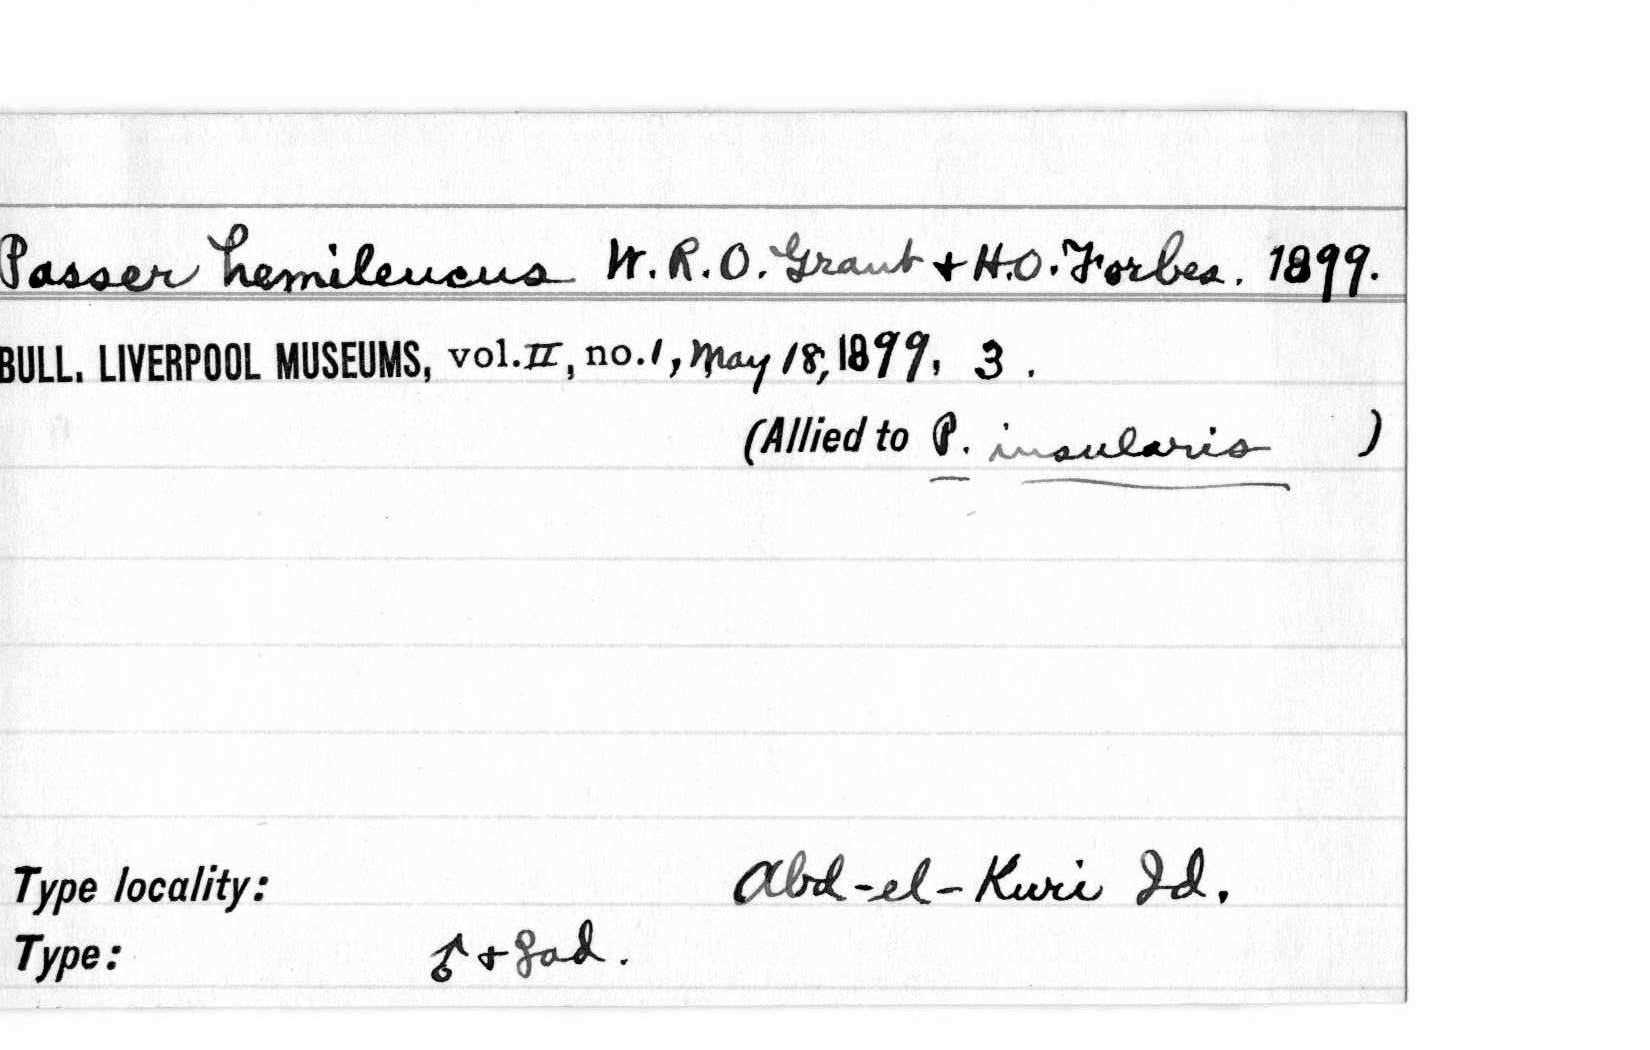 Passer hemileucus W. R. O. Grant + H. O. Forbes. 1899.
BULL. LIVERPOOL MUSEUMS, vol. II, no. 1, May 18, 1899, 3.
(Allied to P. insularis )
Type locality: Abd-el-Kuri Id.
Type: ♂ + ♀ ad.